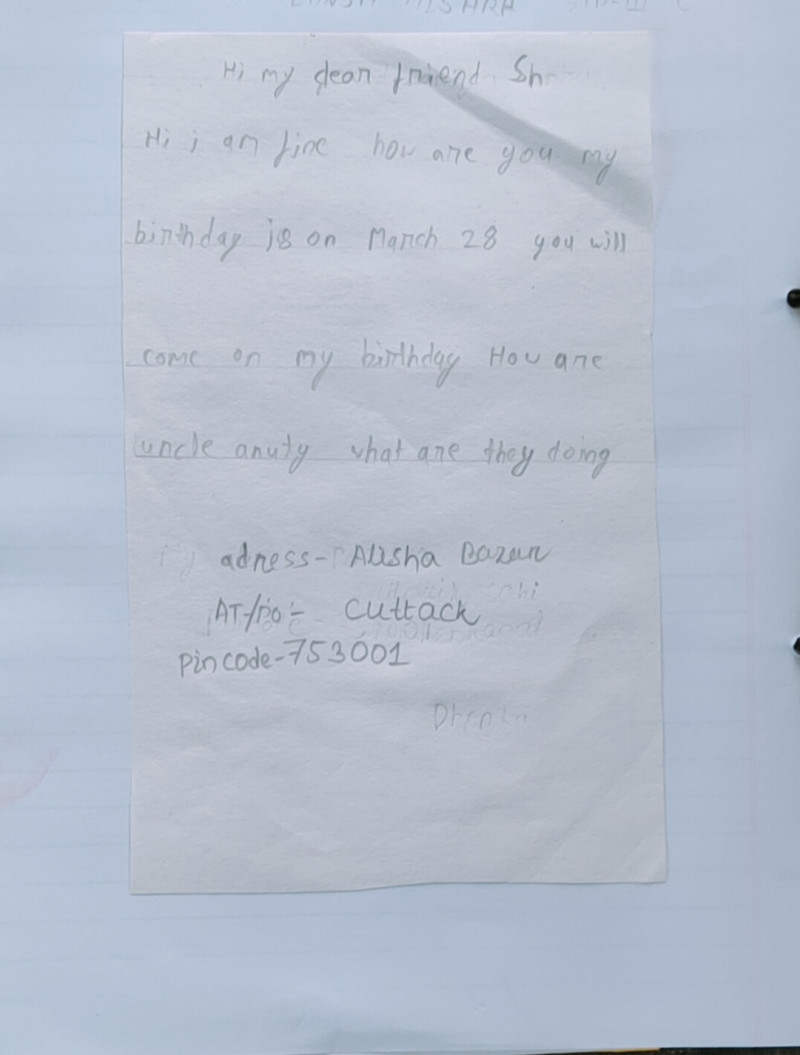 Hi my dear friend
Hi i am fine how are you my
birthday is on March 28 you will
come on my birthday How are
uncle anuty what are they doing
adress- Alisha Bazar
AT/po:- Cuttack
pin code-753001